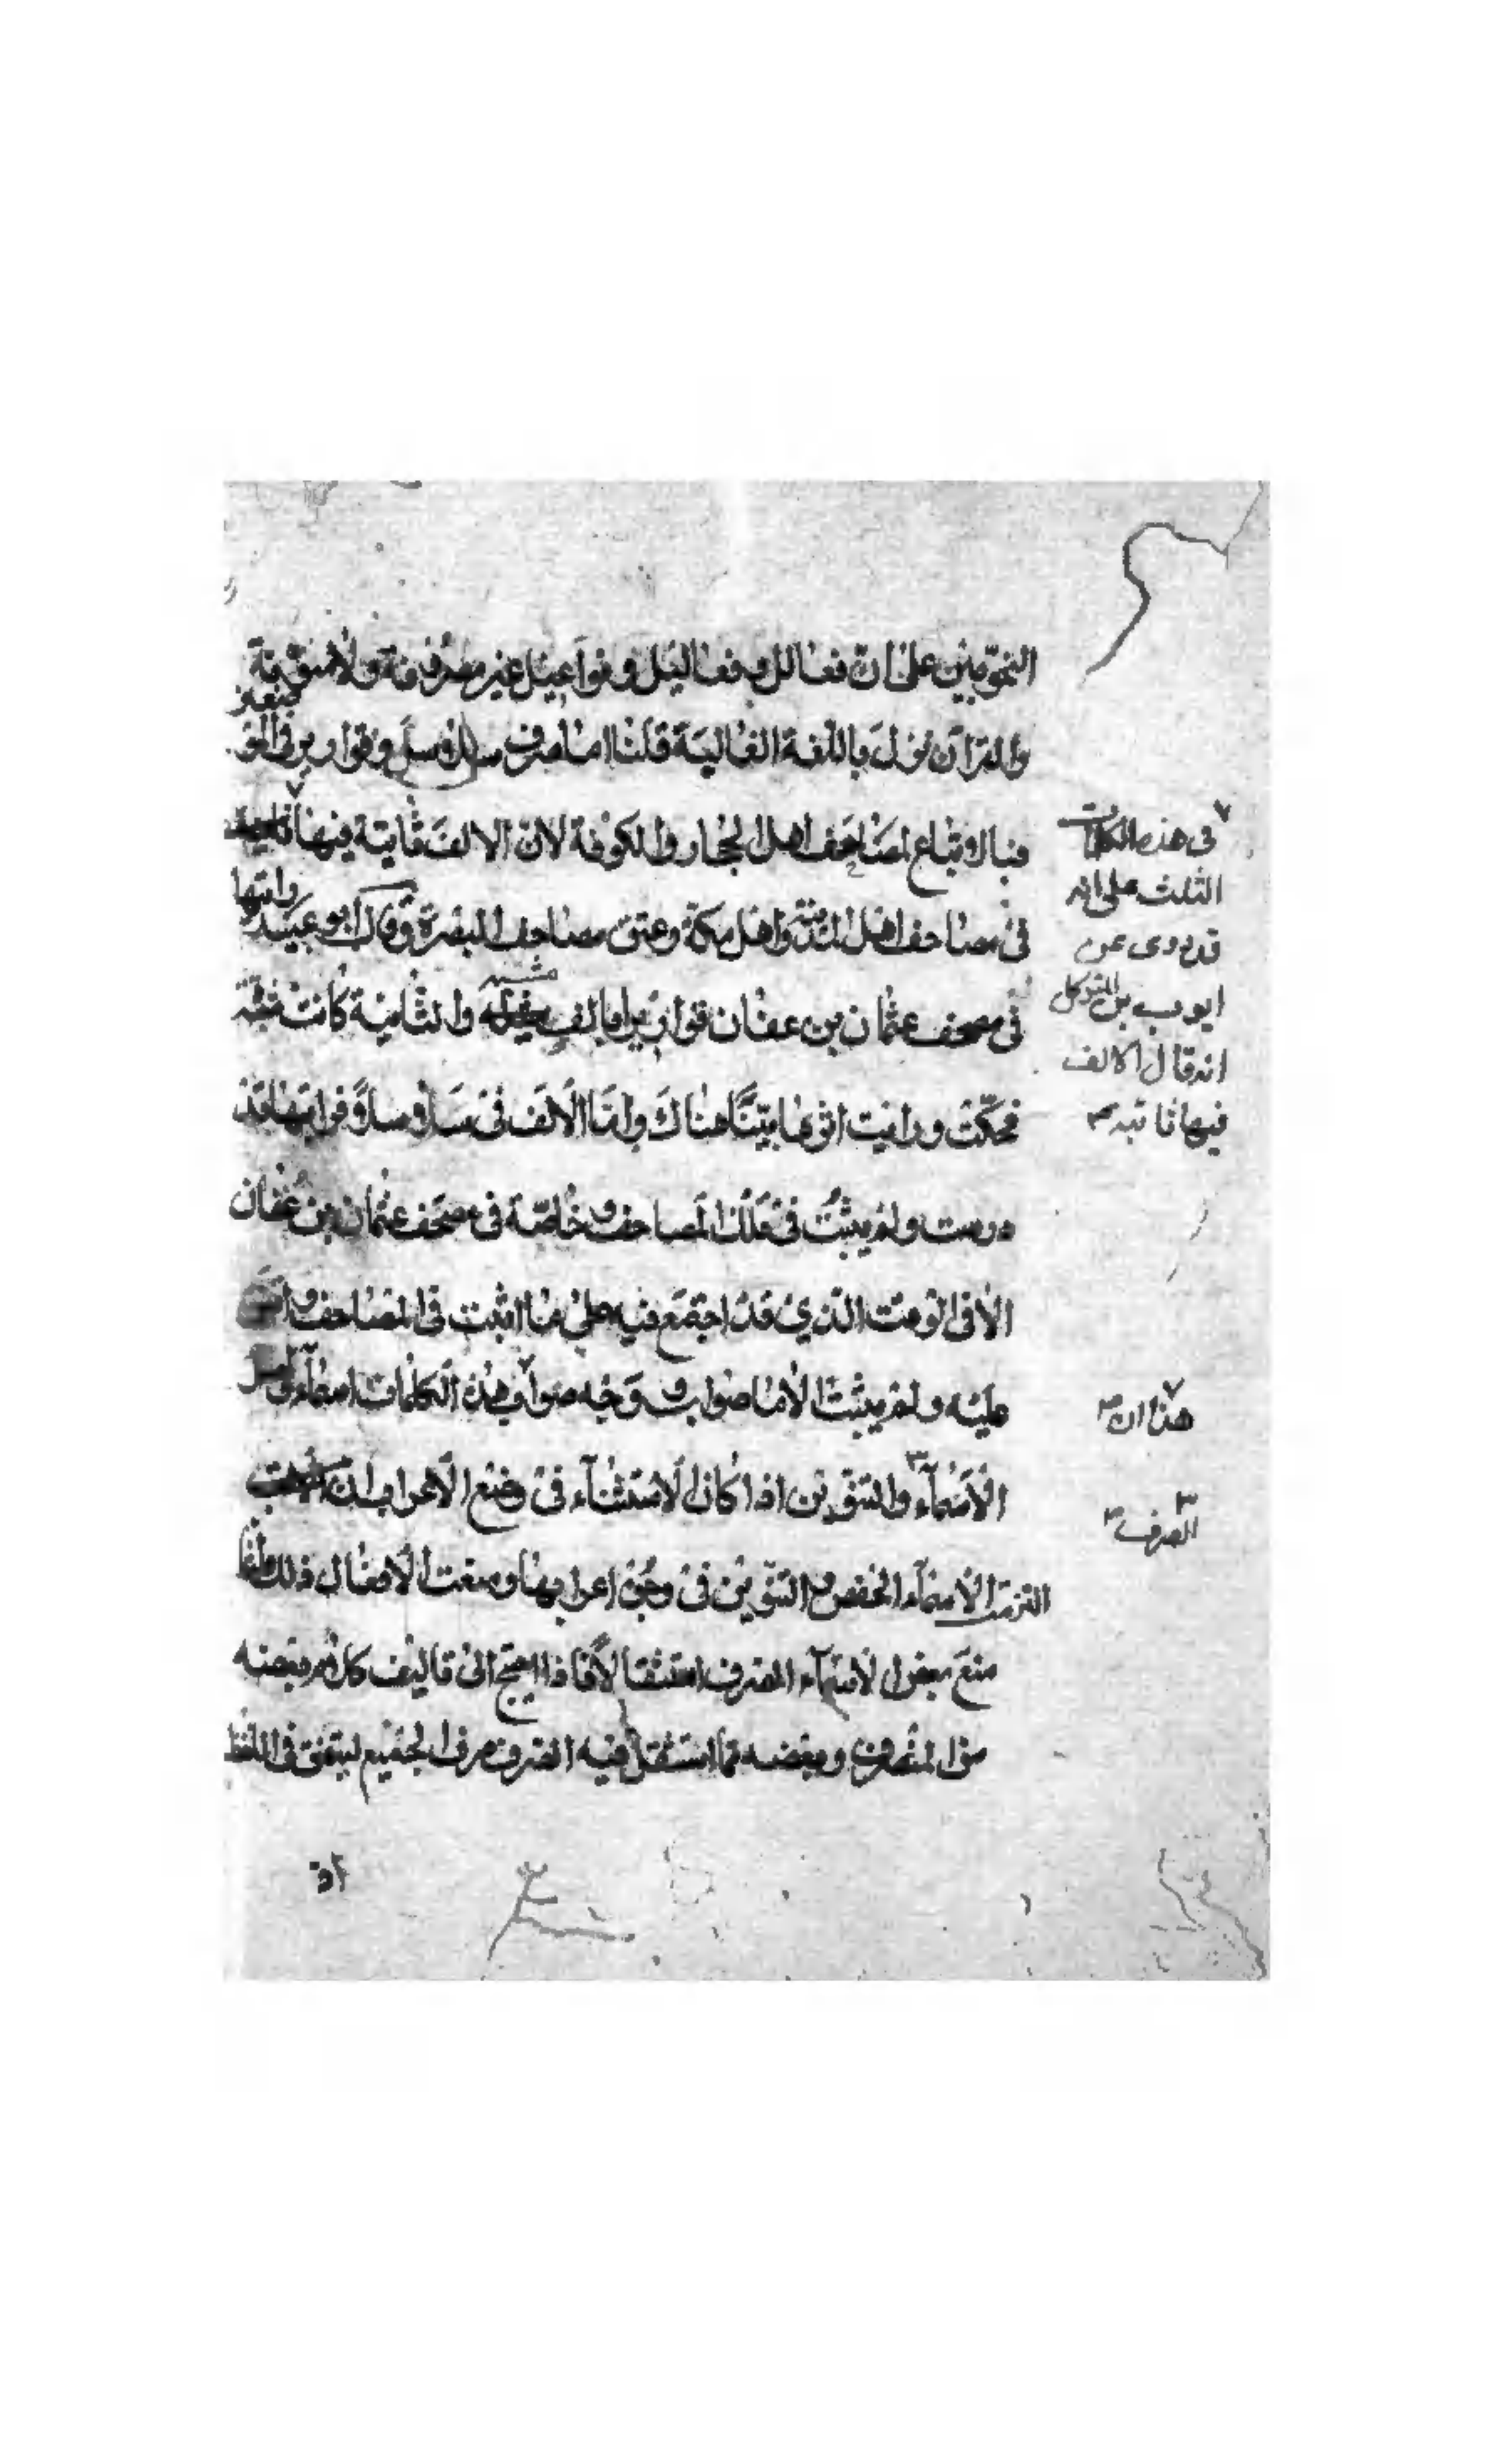 النحويين على ان فعالل وفعاليل وفواعيل غير مصروفة ولا منونة
والقرآن نزل باللغة العالية قلنا اما صرف سلاسل وقوارير في
فباتباع مصاحف اهل الحجاز والكوفة لان الالف ثابتة فيها
في مصاحف اهل المدينة واهل مكة وعتق مصاحف البصرة وقال ابو عبيد رايتها
في مصحف عثمان بن عفان قواريرا بالف مثبتة والثانية كانت مثبتة
فحكت ورايت اثرها بينا هناك واما الالف في سلاسلا فرايتها قد
درست ولم يثبت في تلك المصاحف خاصة في مصحف عثمان بن عفان
الا في الوقت الذي قد اجتمع فيه على ما اثبت في المصاحف
عليه ولم يثبت الا ما صواب وجه صواب هذه الكلمات اسماء
الاسماء والتنوين اذا كان الاستثناء في وضع الاعراب ان
التزمت الاسماء الخفض والتنوين في وجوه اعرابها ومنعت الافعال ذلك
منع بعض الاسماء الصرف استثقالا فاذا احتيج الى تاليف كلام بعضه
من المصروف وبعضه مما استثقل فيه الصرف صرف الجميع ليتفق في اللفظ
في هذه الكلمات
الثلث على انه
قد روى عن
ايوب بن المتوكل
انه قال الالف
فيها ثابتة
هذا ان
الصرف